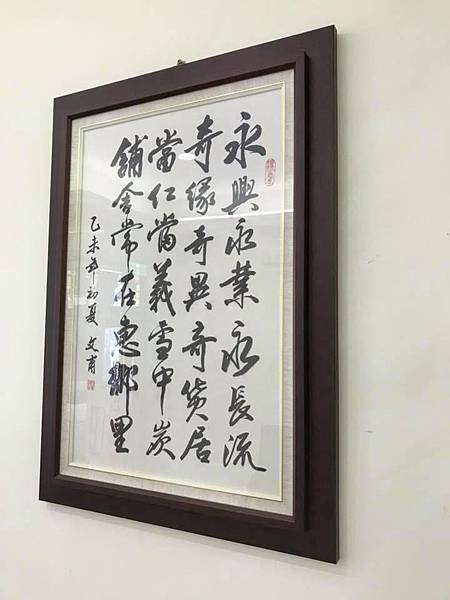 永興永業永長流
奇緣奇異奇貨居
當仁當義雪中炭
舖舍常在惠鄰里
乙未年初夏 文甫